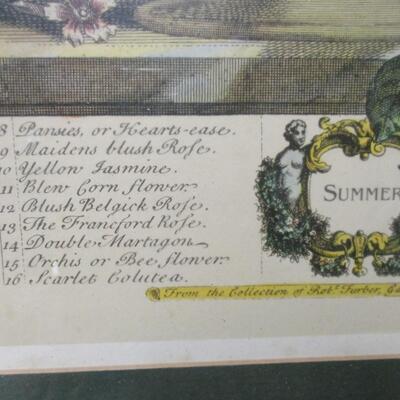 8 Pansies, or Hearts-ease.
9 Maidens blush Rose.
10 Yellow Jasmine.
11 Blew Corn flower.
12 Blush Belgick Rose.
13 The Francford Rose.
14 Double Martagon.
15 Orchis or Bee flower.
16 Scarlet Colutea.
SUMMER
From the Collection of Robt. Furber,